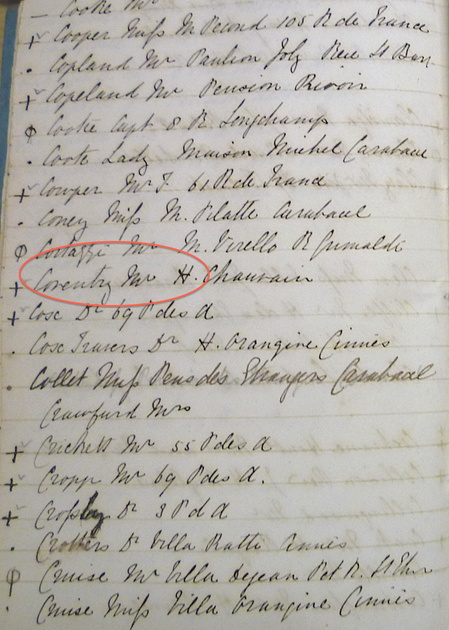 — Cooke Mr
+ Cooper Miss M Second 105 R de France
. Copland Mr Paulion Joly Rue St Barr
+ Copeland Mr Pension Rivoir
φ Coote Capt 8 R. Longchamp
. Coote Lady Maison Michel Carabacel
+ Cowper Mr F. 61 R de France
. Coney Miss M. Pilatte Carabacel
φ Mr M. Virello R Grimaldi
+ Coventry Mr H. Chauvain
+ Cosc Dr 69 P des A
. Cosc Travers Dr H. Orangine Cimies
. Collet Miss Pens des Etrangers Carabacel
Crawfurd Mrs
+ Crickett Mr 55 P des A
+ Cropp Mr 69 P des A.
+ Dr 3 P d A
. Dr Villa Ratti Cimies
φ Cruise Mr Villa Dejean Pet R. St
. Cruise Miss Villa Orangine Cimies